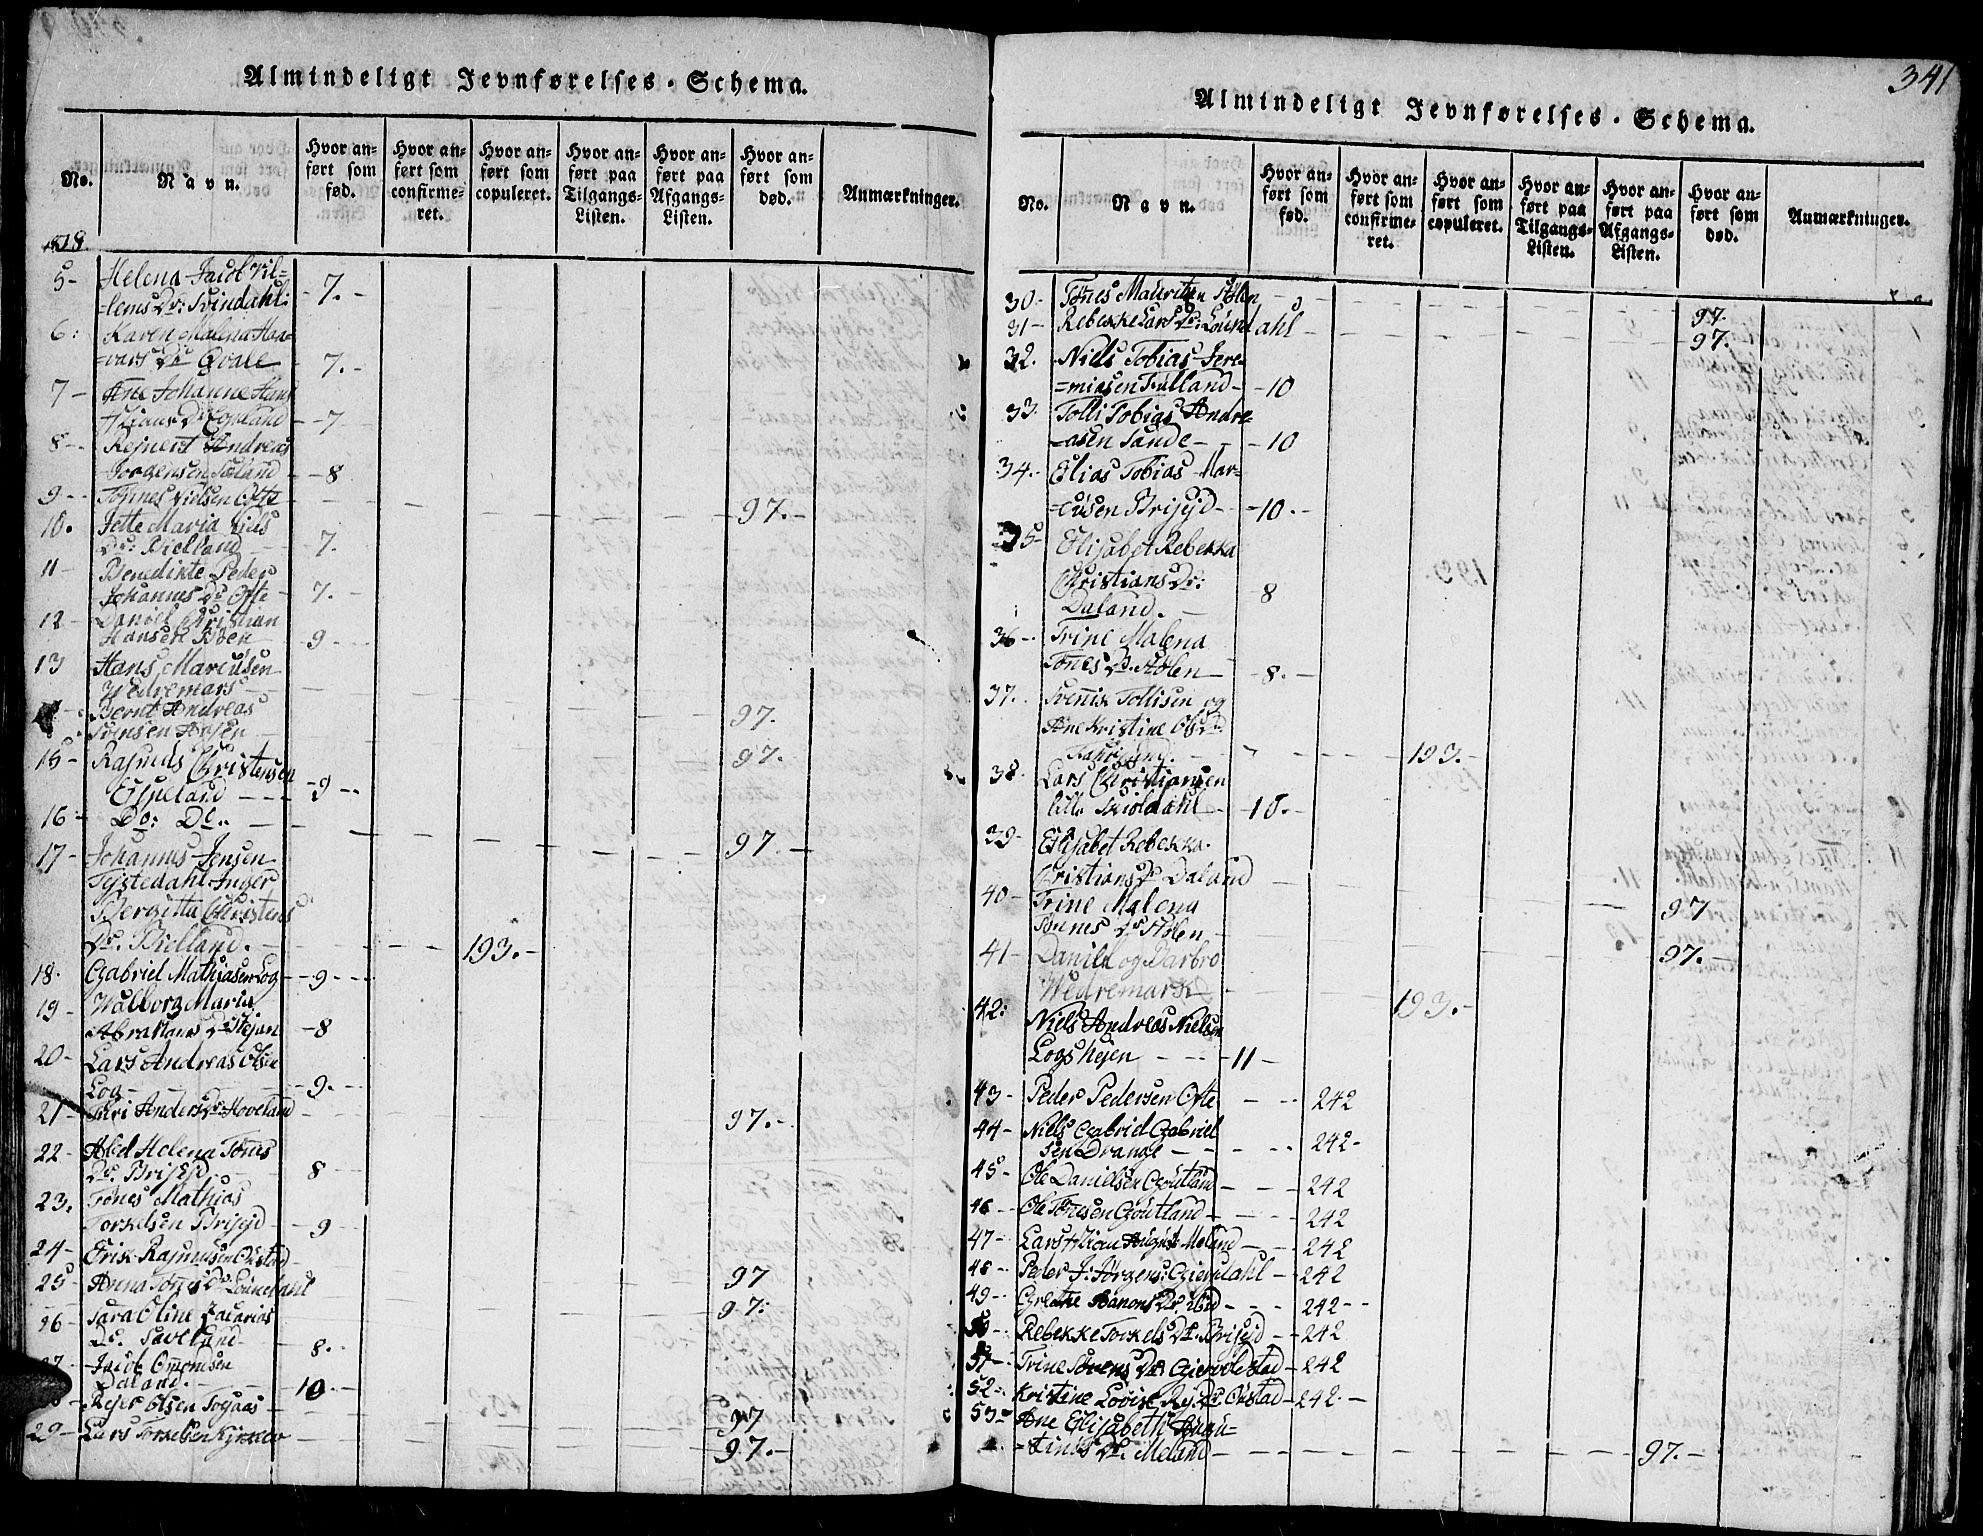 Almindeligt Jevnførelses-Schema.
No. Navn. Hvor anført som fød. Hvor anført som confirmeret. Hvor anført som copuleret. Hvor anført paa Tilgangs-Listen. Hvor anført paa Afgangs-Listen. Hvor anført som død. Anmærkninger.
5- Helena Jacob Vil=
lems Dr: Svindahl: -7.-
6: Karen Malena Haa=
=vars Dr Qvale - 7.-
7- Ane Johanne Hans
Dr Egeland -7
8- Rejnert Andreas
Jørgensen -8
9- Tønnes Nielsen Ofte 97.-
10. Jette Maria Niels
Dr: Bielland 7.
11- Benedikte Peder
Johannes Dr Ofte 7.-
12- Daniel Christian
Hansen Boen 9-
13 Hans Marcusen
Wedremark 97.
Bernt Andreas
97.
15- Rasmus Christensen
Espeland -9-
16- Do: Do.- 97-
17- Johannes Jensen
Tystedahl Inger
Bergitta Christens
Dr. Bielland. 193.-
18. Gabriel Mathiasen Log -9-
19- Walborg Maria
Abrahams Dr Stejan -8
20- Lars Andreas Olsen
Log - 9.-
21- Siri Anders Dr Hoveland 97.-
22- Abel Helena Tønes
Dr. Briseid 8
23. Tønes Mathias
Torkelsen Briseid - 9
24- Erik Rasmusen Øxstad 97
25- Anna Tønes Dr Lonnedahl 97:
26- Sara Oline Zacarias
Dr. 8.-
27- Jacob Ommundsen
Daland. 10-
Rejer Olsen 97
29- Lars Torkelsen 97.-
341
Almindeligt Jevnførelses-Schema.
No. Navn. Hvor anført som fød. Hvor anført som confirmeret. Hvor anført som copuleret. Hvor anført paa Tilgangs-Listen. Hvor anført paa Afgangs-Listen. Hvor anført som død. Anmærkninger.
30- Tønes Mauritzen Stølen 97.
31- Rebekke Lars Dr: 97.
32. Niels Tobias Jere=
=miasen -10
33. Tolli Tobias Andre=
=asen Sande - -10
34.- Elias Tobias Mar=
=cusen Briseid- -10.-
35- Elisabet Rebekka
Christians Dr:
Daland. 8
36- Trine Malena
Tønes Dr. Stølen -8.-
37. Tollisen og
Ane Kristine Ols Dr
193.-
38. Lars Christiansen
lille -10.-
39- Elisabet Rebekka
Cristians Dr Daland 97
40- Trine Malena
Tønnes Dr Stølen 97.-
41- Daniel og Barbro
Wedremark 193.-
42: Niels Andreas Nielsen
Logshejen -11-
43- Peder Pedersen Ofte 242
44- Niels Gabriel Gabriel
sen Drange 242-
45- Ole Danielsen Goutland 242
46- Ole Tønesen Goutland 242
47- Lars August Meland 242
48- Peder J: Jørgens: Gjerdahl -242
49- Grethe Aanons Dr. ibid 242-
50- Rebekke Torkels Dr. Briseid -242
51- Trine Dr 242
52- Kristine Lovise Dr. Øxstad -242-
53- Ane Elisabeth Augu=
=stinus Dr. Meland 97.-